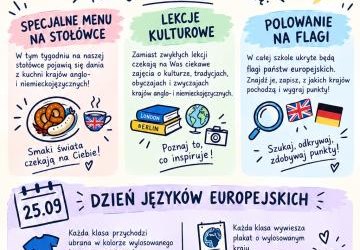 SPECJALNE MENU
NA STOŁÓWCE
W tym tygodniu na naszej
stołówce pojawią się dania
z kuchni krajów anglo-
i niemieckojęzycznych!
Smaki świata
czekają na Ciebie!
LEKCJE
KULTUROWE
Zamiast zwykłych lekcji
czekają na Was ciekawe
zajęcia o kulturze, tradycjach,
obyczajach i zwyczajach
krajów anglo- i niemieckojęzycznych!
LONDON
BERLIN
Poznaj to,
co inspiruje!
POLOWANIE
NA FLAGI
W całej szkole ukryte będą
flagi państw europejskich.
Znajdź je, zapisz, z jakich krajów
pochodzą i wygraj punkty!
Szukaj, odkrywaj,
zdobywaj punkty!
25.09
DZIEŃ JĘZYKÓW EUROPEJSKICH
Każda klasa przychodzi
ubrana w kolorze wylosowanego
Każda klasa wywiesza
plakat o wylosowanym
kraju